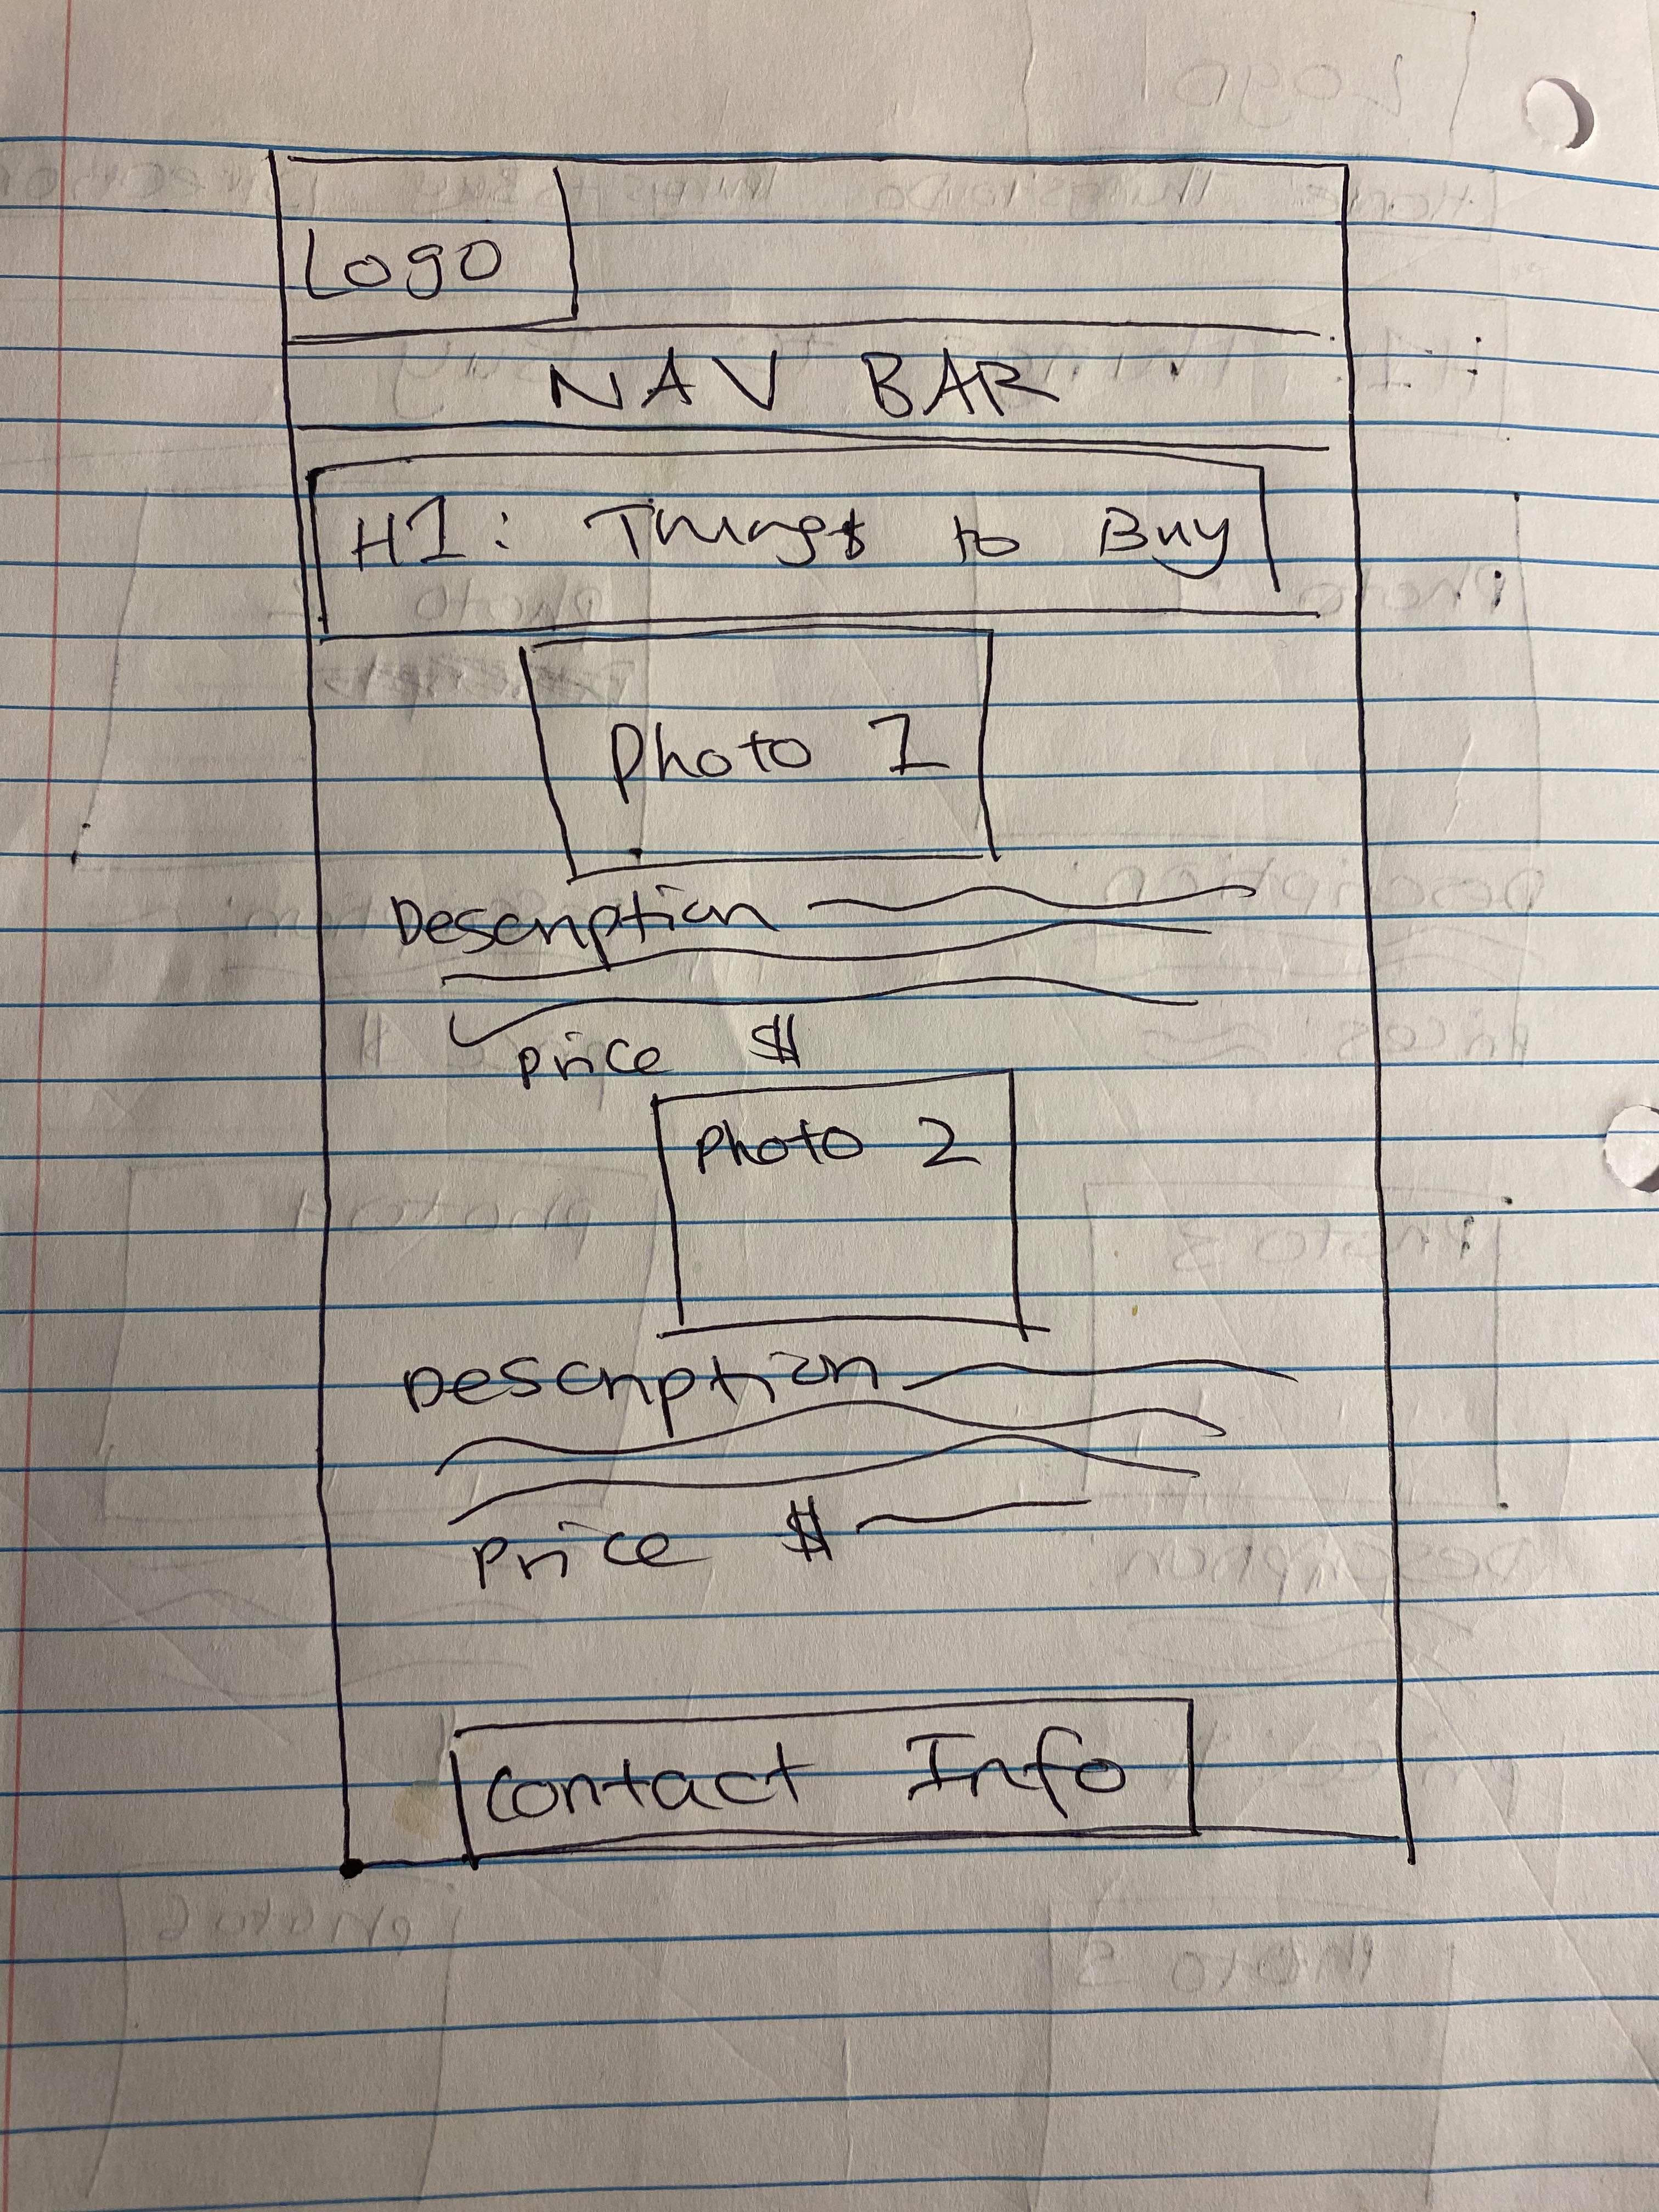 Logo
NAV BAR
H1: Things to Buy
Photo 1
Description
Price $
Photo 2
Description
Price $
Contact Info